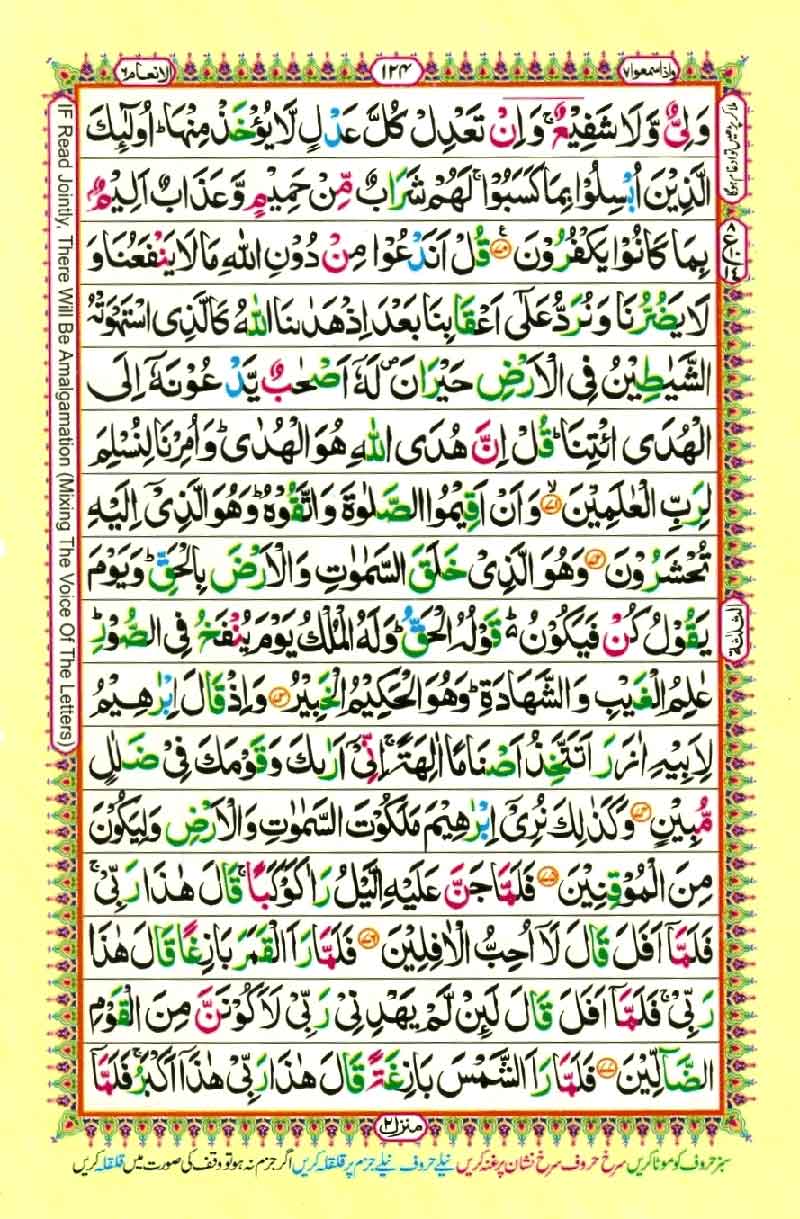 واذا سمعوا ٧
١٢٤
الانعام ٦
وَلِیٌّ وَّلَا شَفِیْعٌ ۚ وَاِنْ تَعْدِلْ كُلَّ عَدْلٍ لَّا یُؤْخَذْ مِنْهَا ؕ اُولٰٓئِكَ
الَّذِیْنَ اُبْسِلُوْا بِمَا كَسَبُوْا ۚ لَهُمْ شَرَابٌ مِّنْ حَمِیْمٍ وَّعَذَابٌ اَلِیْمٌۢ
بِمَا كَانُوْا یَكْفُرُوْنَ ﴿۷۰﴾ قُلْ اَنَدْعُوْا مِنْ دُوْنِ اللّٰهِ مَا لَا یَنْفَعُنَا وَ
لَا یَضُرُّنَا وَنُرَدُّ عَلٰۤی اَعْقَابِنَا بَعْدَ اِذْ هَدٰىنَا اللّٰهُ كَالَّذِی اسْتَهْوَتْهُ
الشَّیٰطِیْنُ فِی الْاَرْضِ حَیْرَانَ ۪ لَهٗۤ اَصْحٰبٌ یَّدْعُوْنَهٗۤ اِلَی
الْهُدَی ائْتِنَا ؕ قُلْ اِنَّ هُدَی اللّٰهِ هُوَ الْهُدٰی ؕ وَاُمِرْنَا لِنُسْلِمَ
لِرَبِّ الْعٰلَمِیْنَ ﴿۷۱﴾ وَاَنْ اَقِیْمُوا الصَّلٰوةَ وَاتَّقُوْهُ ؕ وَهُوَ الَّذِیْۤ اِلَیْهِ
تُحْشَرُوْنَ ﴿۷۲﴾ وَهُوَ الَّذِیْ خَلَقَ السَّمٰوٰتِ وَالْاَرْضَ بِالْحَقِّ ؕ وَیَوْمَ
یَقُوْلُ كُنْ فَیَكُوْنُ ؕ۬ قَوْلُهُ الْحَقُّ ؕ وَلَهُ الْمُلْكُ یَوْمَ یُنْفَخُ فِی الصُّوْرِ ؕ
عٰلِمُ الْغَیْبِ وَالشَّهَادَةِ ؕ وَهُوَ الْحَكِیْمُ الْخَبِیْرُ ﴿۷۳﴾ وَاِذْ قَالَ اِبْرٰهِیْمُ
لِاَبِیْهِ اٰزَرَ اَتَتَّخِذُ اَصْنَامًا اٰلِهَةً ۚ اِنِّیْۤ اَرٰىكَ وَقَوْمَكَ فِیْ ضَلٰلٍ
مُّبِیْنٍ ﴿۷۴﴾ وَكَذٰلِكَ نُرِیْۤ اِبْرٰهِیْمَ مَلَكُوْتَ السَّمٰوٰتِ وَالْاَرْضِ وَلِیَكُوْنَ
مِنَ الْمُوْقِنِیْنَ ﴿۷۵﴾ فَلَمَّا جَنَّ عَلَیْهِ الَّیْلُ رَاٰ كَوْكَبًا ۚ قَالَ هٰذَا رَبِّیْ ۚ
فَلَمَّاۤ اَفَلَ قَالَ لَاۤ اُحِبُّ الْاٰفِلِیْنَ ﴿۷۶﴾ فَلَمَّا رَاَ الْقَمَرَ بَازِغًا قَالَ هٰذَا
رَبِّیْ ۚ فَلَمَّاۤ اَفَلَ قَالَ لَىِٕنْ لَّمْ یَهْدِنِیْ رَبِّیْ لَاَكُوْنَنَّ مِنَ الْقَوْمِ
الضَّآلِّیْنَ ﴿۷۷﴾ فَلَمَّا رَاَ الشَّمْسَ بَازِغَةً قَالَ هٰذَا رَبِّیْ هٰذَاۤ اَكْبَرُ ۚ فَلَمَّاۤ
الثلٰثة
IF Read Jointly, There Will Be Amalgamation (Mixing The Voice Of The Letters)
منزل ٢
سبز حروف کو موٹا کریں سرخ حروف سرخ نشان پر غنہ کریں نیلے حروف نیلے جزم پر قلقلہ کریں اگر جزم نہ ہو تو وقف کی صورت میں قلقلہ کریں